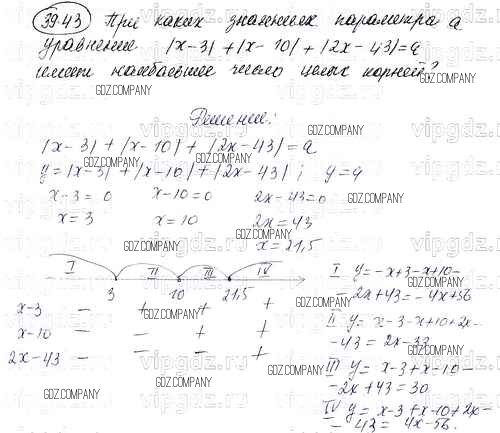 39.43 При каких значениях параметра а
уравнение |x-3| + |x-10| + |2x-43| = a
имеет наибольшее число целых корней?
Решение:
|x-3| + |x-10| + |2x-43| = a
y = |x-3| + |x-10| + |2x-43| ; y = a
x-3=0 x-10=0 2x-43=0
x=3 x=10 2x=43
x=21,5
I II III IV
3 10 21,5
x-3 - + + +
x-10 - - + +
2x-43 - - - +
I y=-x+3-x+10-
-2x+43=-4x+56
II y= x-3-x+10+2x-
-43= 2x-33
III y= x-3+x-10-
-2x+43=30
IV y= x-3+x-10+2x-
- 43= 4x-56.
GDZ.COMPANY
vipgdz.ru